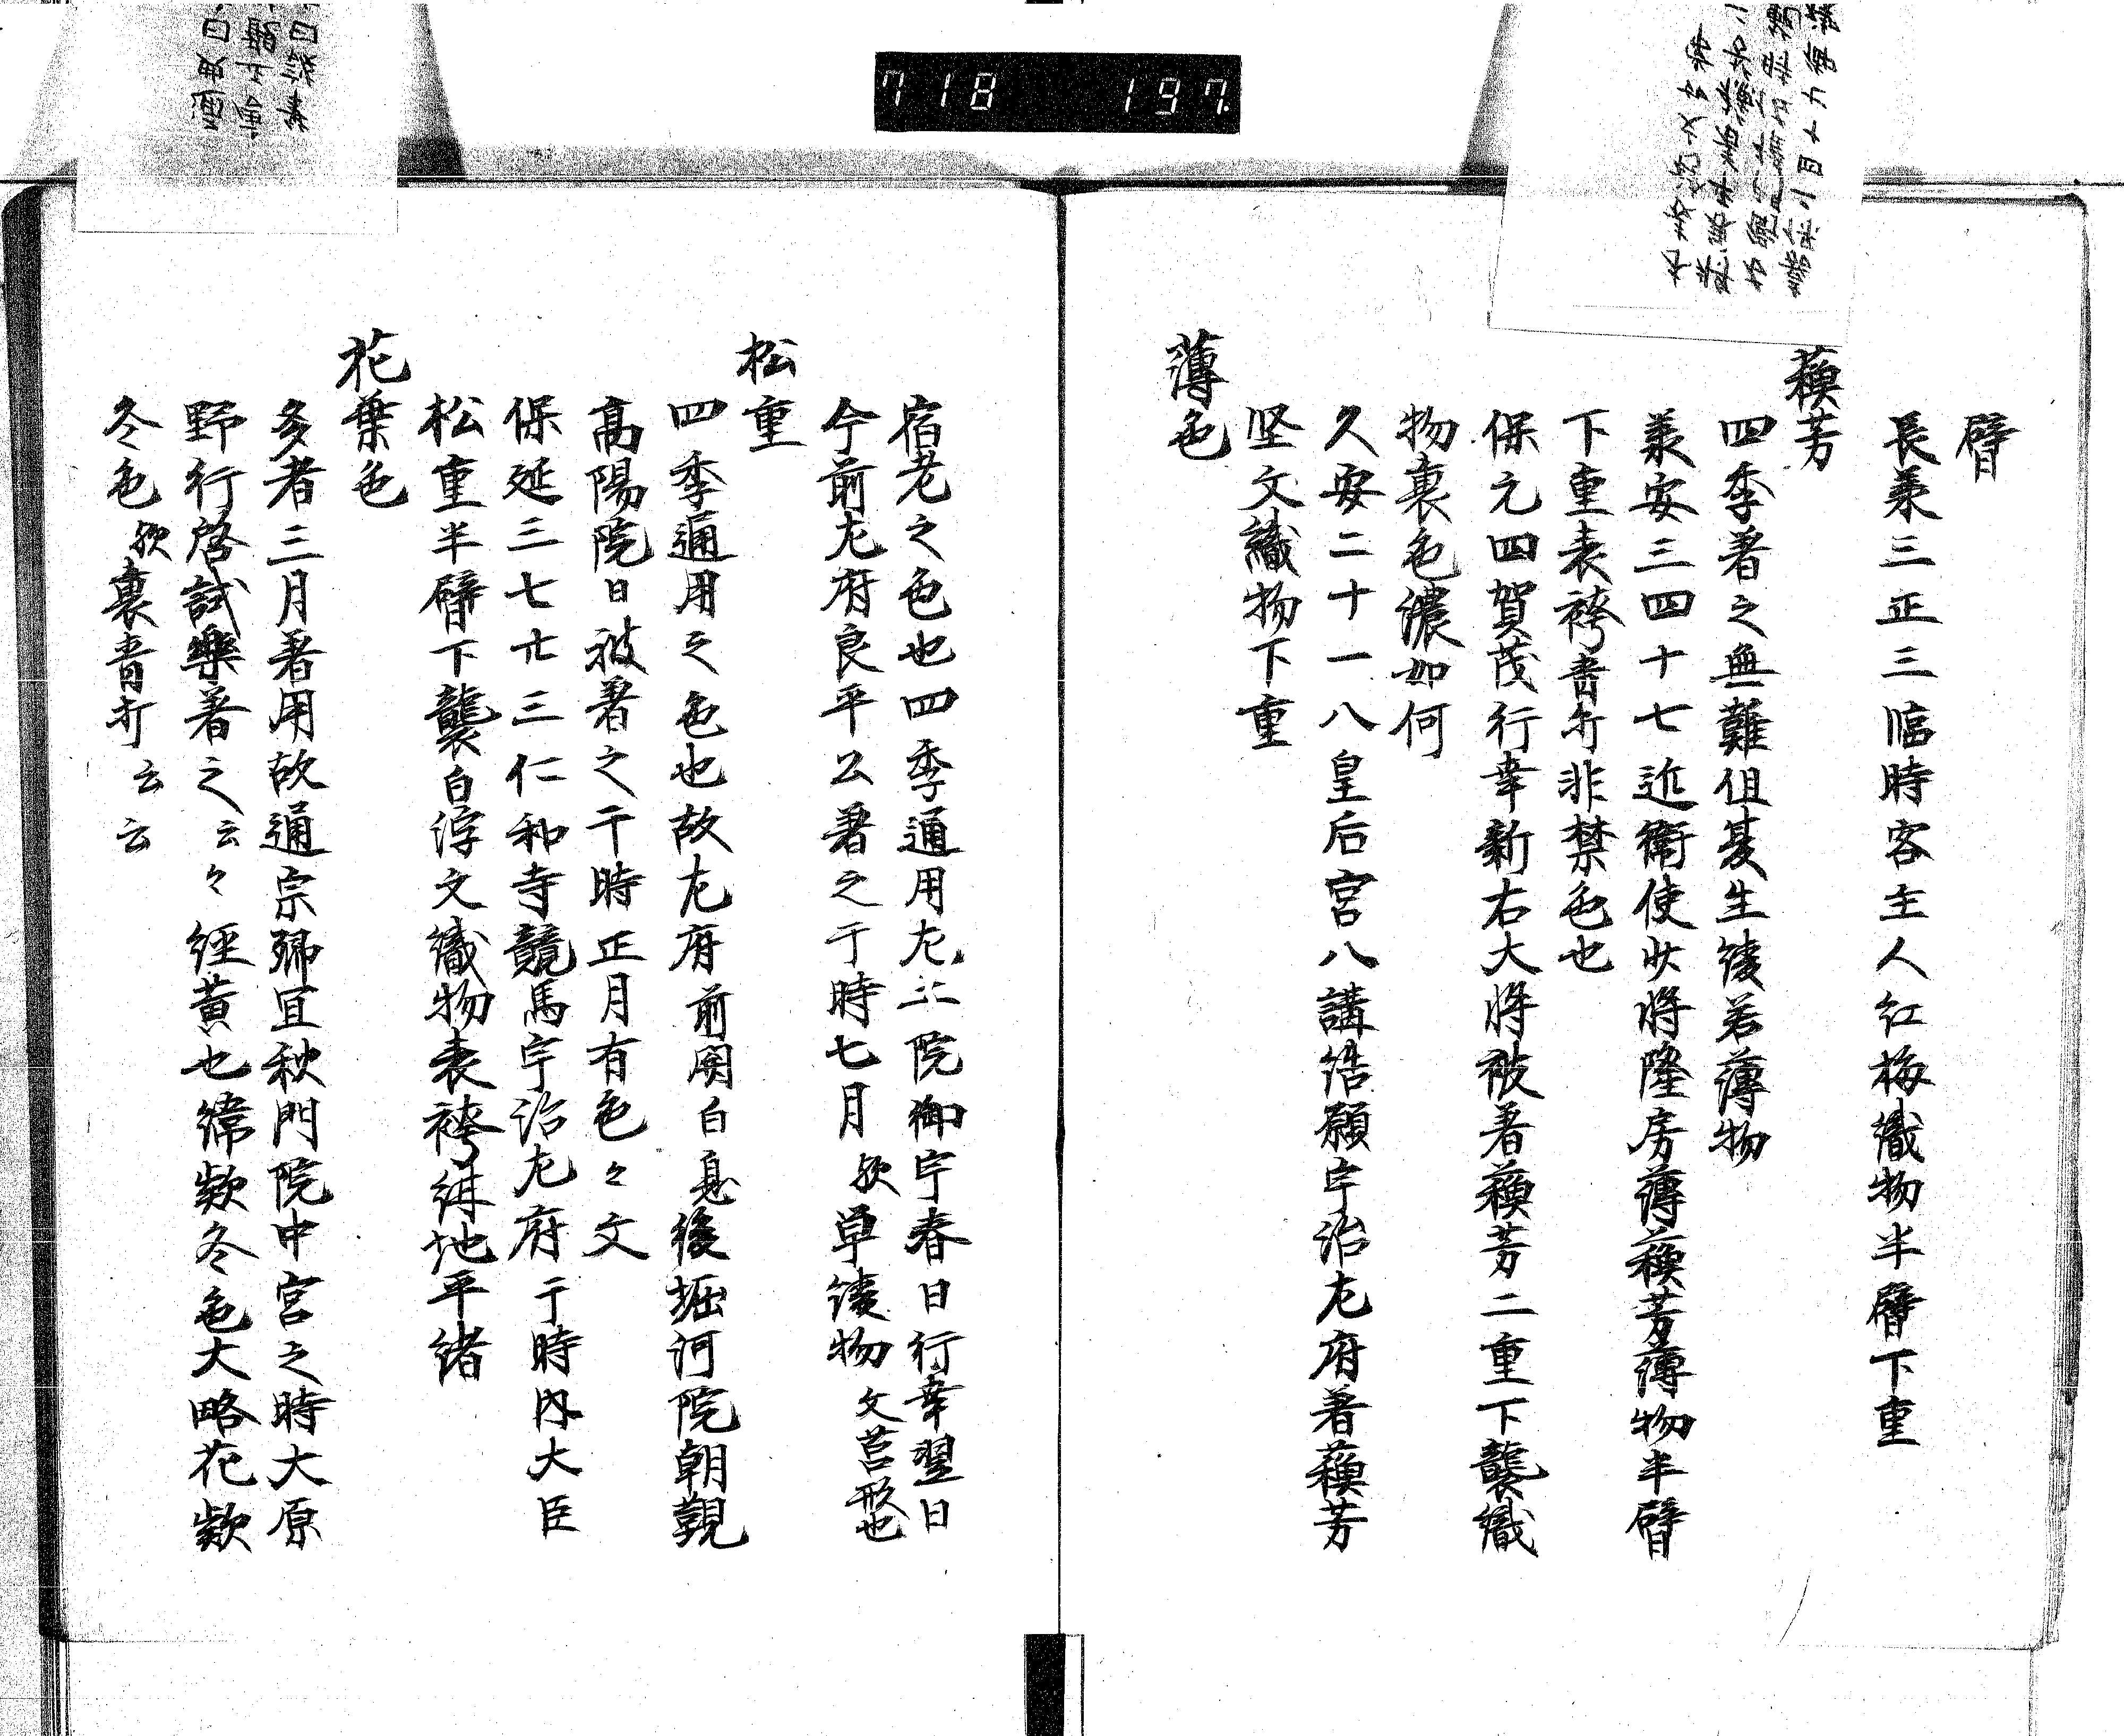 718 197
臂
長承三正三臨時客主人紅梅織物半臂下重
蘓芳
四季著之無難但夏生綾若薄物
承安三四十七近衛使少将隆房薄蘓芳薄物半臂
下重表袴青朽非禁色也
保元四賀茂行幸新右大将被著蘓芳二重下襲織
物裏色濃如何
久安二十一八皇后宮八講結願宇治左府著蘓芳
堅文織物下重
薄色
宿老之色也四季通用左 院御宇春日行幸翌日
今前左府良平公著之于時七月 歟単綾物 文莒形也
松重
四季通用之色也故左府 前関白息 後堀河院朝覲
高陽院日被著之于時正月有色々文
保延三七廿三仁和寺競馬宇治左府 于時内大臣
松重半臂下襲白浮文織物表袴紺地平緒
花葉色
多者三月著用故通宗卿宜秋門院中宮之時大原
野行啓試樂著之云々経黄也緯欵冬色大略花欵
冬色歟裏青朽云云